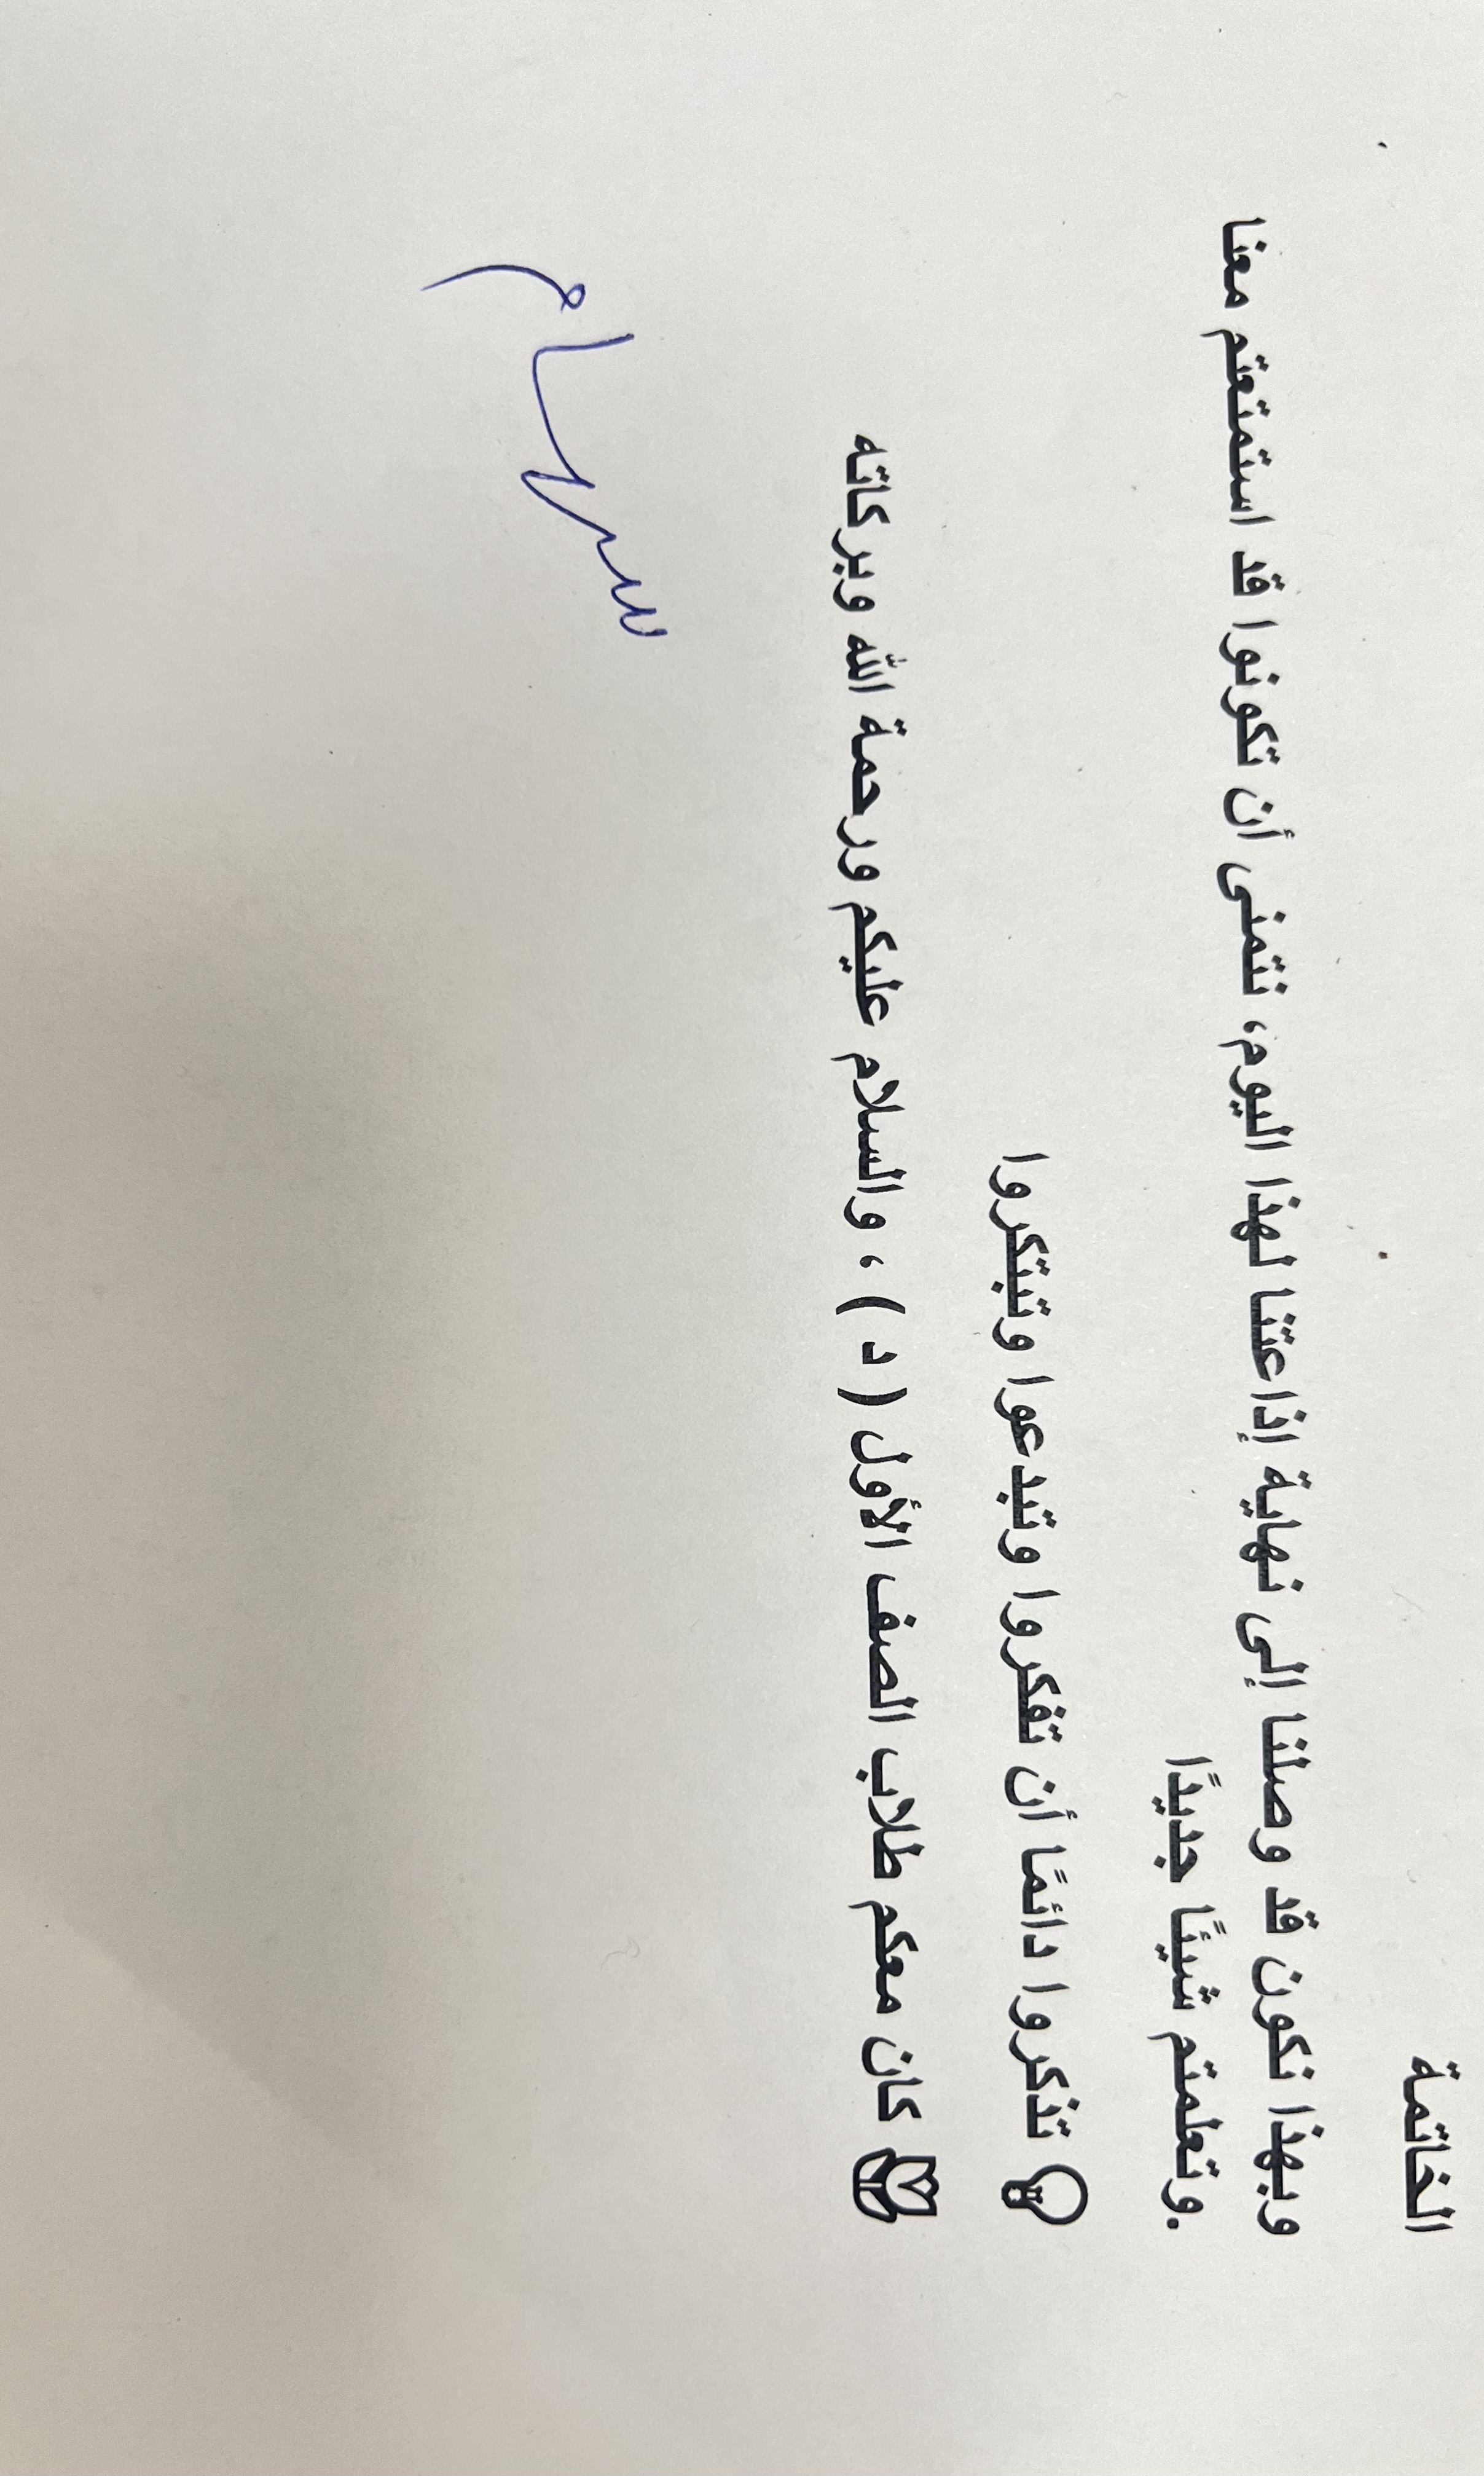 الخاتمة
وبهذا نكون قد وصلنا إلى نهاية إذاعتنا لهذا اليوم، نتمنى أن تكونوا قد استمتعتم معنا
.وتعلمتم شيئًا جديدًا
💡 تذكروا دائمًا أن تفكروا وتبدعوا وتبتكروا
كان معكم طلاب الصف الأول ( د ) ، والسلام عليكم ورحمة الله وبركاته
سهام